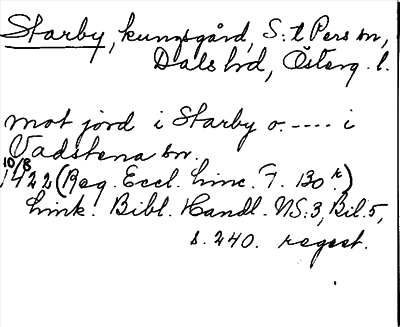 Starby, kungsgård, S:t Pers sn,
Dals hd, Österg. l.
mot jord i Starby o. ----- i
Vadstena sn.
10/8
1422 (Reg. Eccl. Linc. F. 130 r.)
Link. Bibl. Handl. NS:3, Bil. 5,
s. 240. regest.